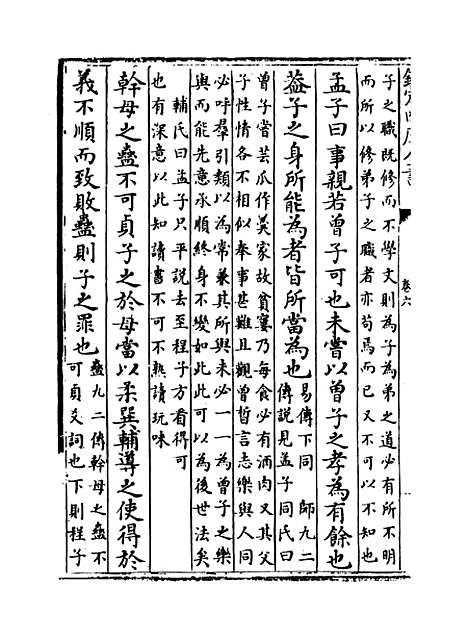 子之職既修而不學文則為子為弟之道必有所不明
而所以修弟子之職者亦苟焉而已又不可以不知也
孟子曰事親若曾子可也未嘗以曾子之孝為有餘也
蓋子之身所能為者皆所當為也
易傳下同　師九二
傳說見孟子同氏曰
曾子嘗芸瓜作羮家故貧窶乃每食必有酒肉又其父
子性情各不相似奉事甚難且觀曾晳言志樂與人同
必呼羣引類以為常兼其所與未必一一為曾子之樂
與而能先意承順終身不變如此此可以為後世法矣
輔氏曰孟子只平説去至程子方看得可
也有深意以此知讀書不可不熟讀玩味
幹母之蠱不可貞子之於母當以柔巽輔導之使得於
義不順而致敗蠱則子之罪也
蠱九二傳幹母之蠱不
可貞爻詞也下則程子
卷六